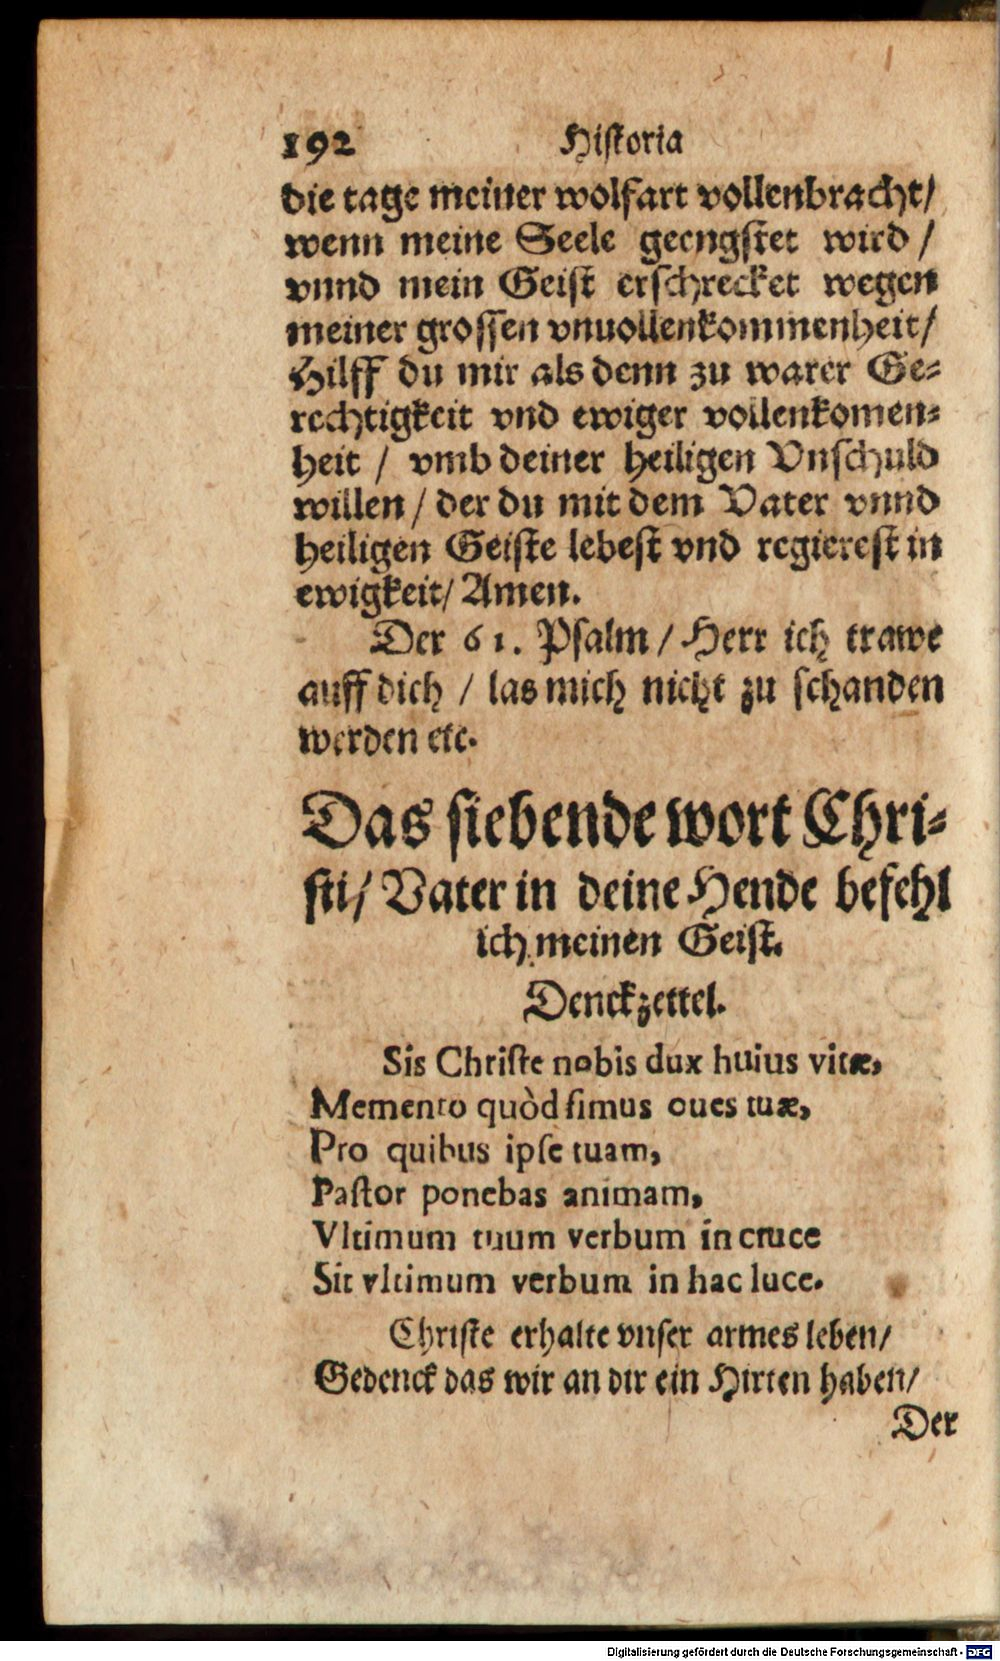 192 Historia
die tage meiner wolfart vollenbracht/
wenn meine Seele geengstet wird /
vnnd mein Geist erschrecket wegen
meiner grossen vnuollenkommenheit/
Hilff du mir als denn zu warer Ge-
rechtigkeit vnd ewiger vollenkomen-
heit / vmb deiner heiligen Vnschuld
willen / der du mit dem Vater vnnd
heiligen Geiste lebest vnd regierest in
ewigkeit/ Amen.
Der 61. Psalm / Herr ich trawe
auff dich / las mich nicht zu schanden
werden etc.
Das siebende wort Chri-
sti/ Vater in deine Hende befehl
ich meinen Geist.
Denckzettel.
Sis Christe nobis dux huius vitæ,
Memento quòd simus oues tuæ,
Pro quibus ipse tuam,
Pastor ponebas animam,
Vltimum tuum verbum in cruce
Sit vltimum verbum in hac luce.
Christe erhalte vnser armes leben/
Gedenck das wir an dir ein Hirten haben/
Der
Digitalisierung gefördert durch die Deutsche Forschungsgemeinschaft - DFG